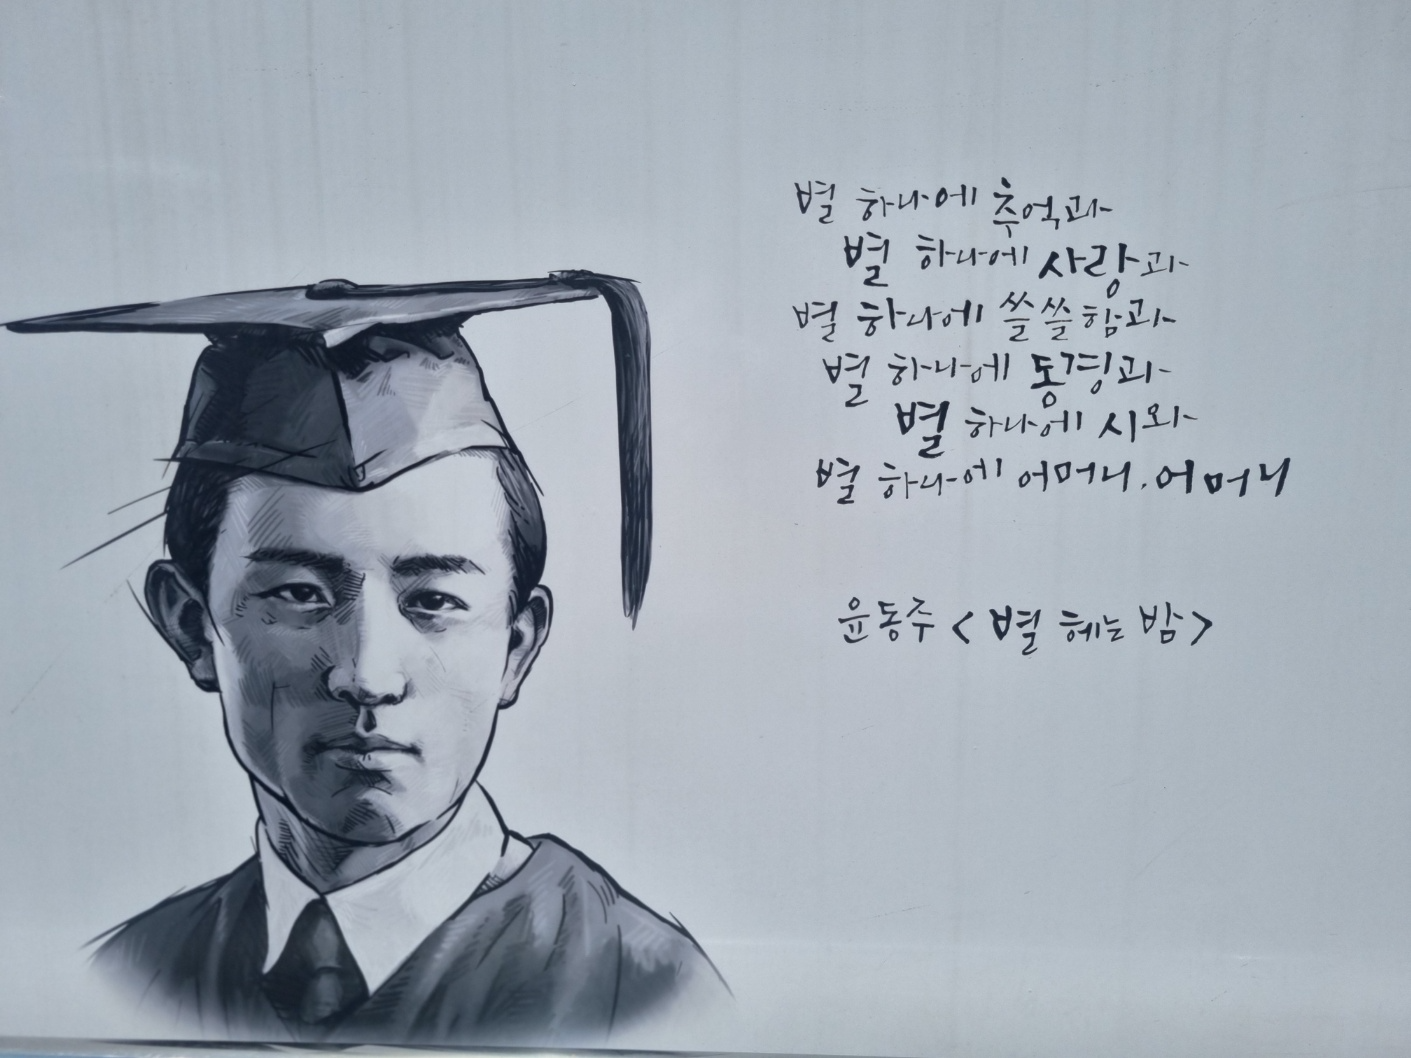 별 하나에 추억과
별 하나에 사랑과
별 하나에 쓸쓸함과
별 하나에 동경과
별 하나에 시와
별 하나에 어머니, 어머니
윤동주 < 별 헤는 밤 >